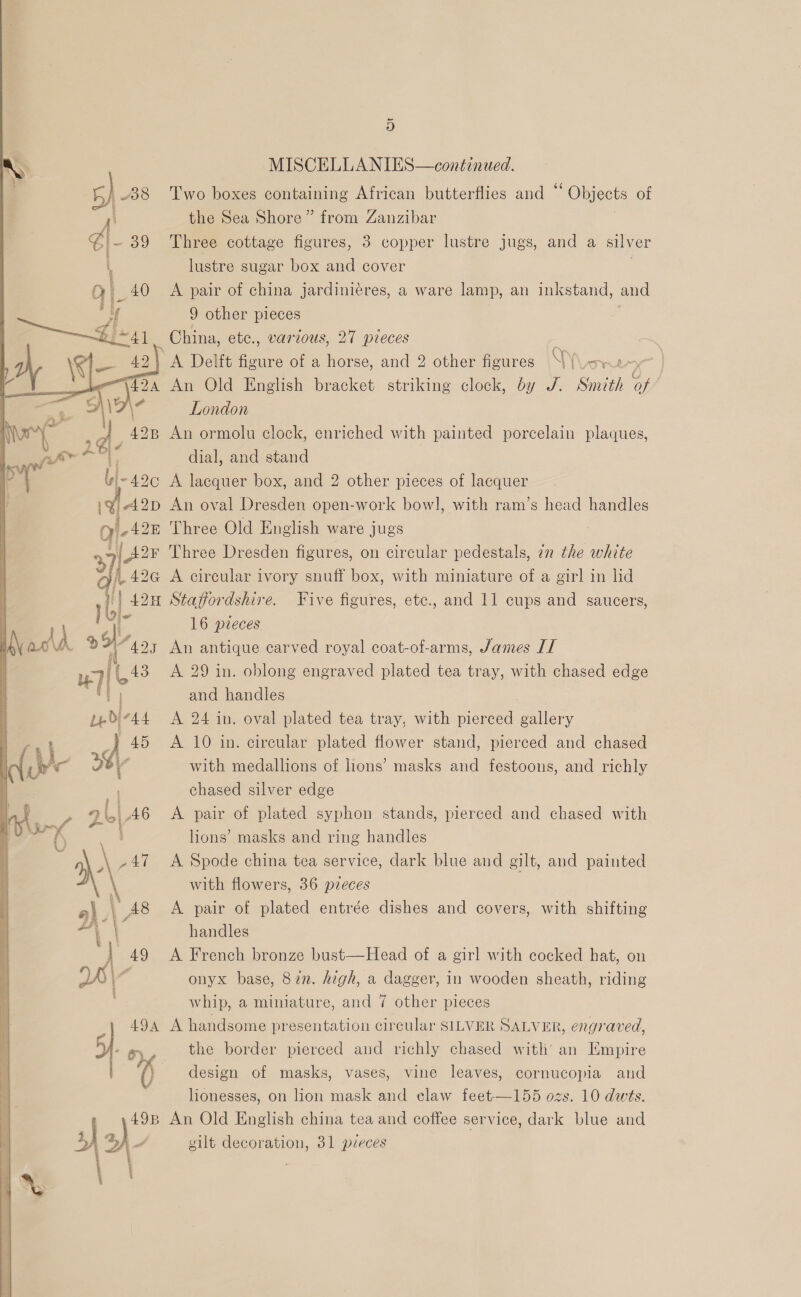 5
MISCELLANIES—continued.
38 Two boxes containing African butterflies and “Objects of
the Sea Shore” from Zanzibar
39 Three cottage figures, 3 copper lustre jugs, and a silver
lustre sugar box and cover
40 A pair of china jardinières, a ware lamp, an inkstand, and
9 other pieces
41 China, etc., various, 27 pieces
42 A Delft figure of a horse, and 2 other figures
42A An Old English bracket striking clock, by J. Smith of
London
42B An ormolu clock, enriched with painted porcelain plaques,
dial, and stand
42C A lacquer box, and 2 other pieces of lacquer
42D An oval Dresden open-work bowl, with ram’s head handles
42E Three Old English ware jugs
42F Three Dresden figures, on circular pedestals, in the white
42G A circular ivory snuff box, with miniature of a girl in lid
42H Staffordshire. Five figures, etc., and 11 cups and saucers,
16 pieces
42J An antique carved royal coat-of-arms, James II
43 A 29 in. oblong engraved plated tea tray, with chased edge
and handles
44 A 24 in. oval plated tea tray, with pierced gallery
45 A 10 in. circular plated flower stand, pierced and chased
with medallions of lions’ masks and festoons, and richly
chased silver edge
46 A pair of plated syphon stands, pierced and chased with
lions’ masks and ring handles
47 A Spode china tea service, dark blue and gilt, and painted
with flowers, 36 pieces
48 A pair of plated entrée dishes and covers, with shifting
handles
49 A French bronze bust—Head of a girl with cocked hat, on
onyx base, 8 in. high, a dagger, in wooden sheath, riding
whip, a miniature, and 7 other pieces
49A A handsome presentation circular SILVER SALVER, engraved,
the border pierced and richly chased with an Empire
design of masks, vases, vine leaves, cornucopia and
lionesses, on lion mask and claw feet—155 ozs. 10 dwts.
49B An Old English china tea and coffee service, dark blue and
gilt decoration, 31 pieces